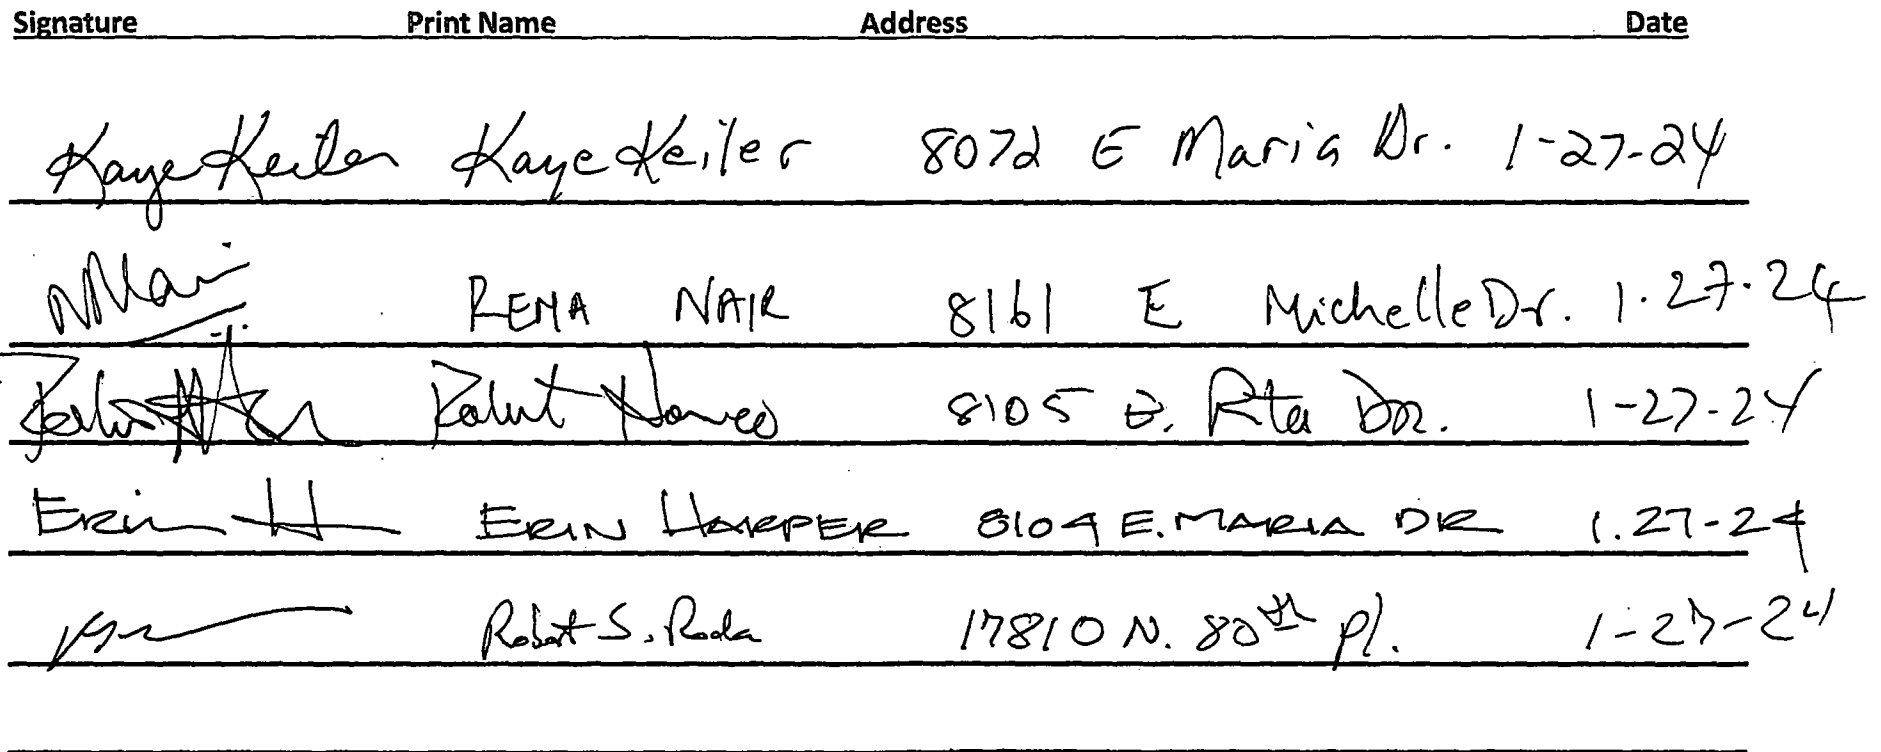 Signature Print Name Address Date
Kaye Keiler Kaye Keiler 8072 E Maria Dr. 1-27-24
REMA NAIR 8161 E Michelle Dr. 1.27.24
Robert 8105 E. Rita Dr. 1-27-24
Erin H ERIN HARPER 8104 E. MARIA DR 1.27-24
Robert S. Roda 17810 N. 80th Pl. 1-27-24